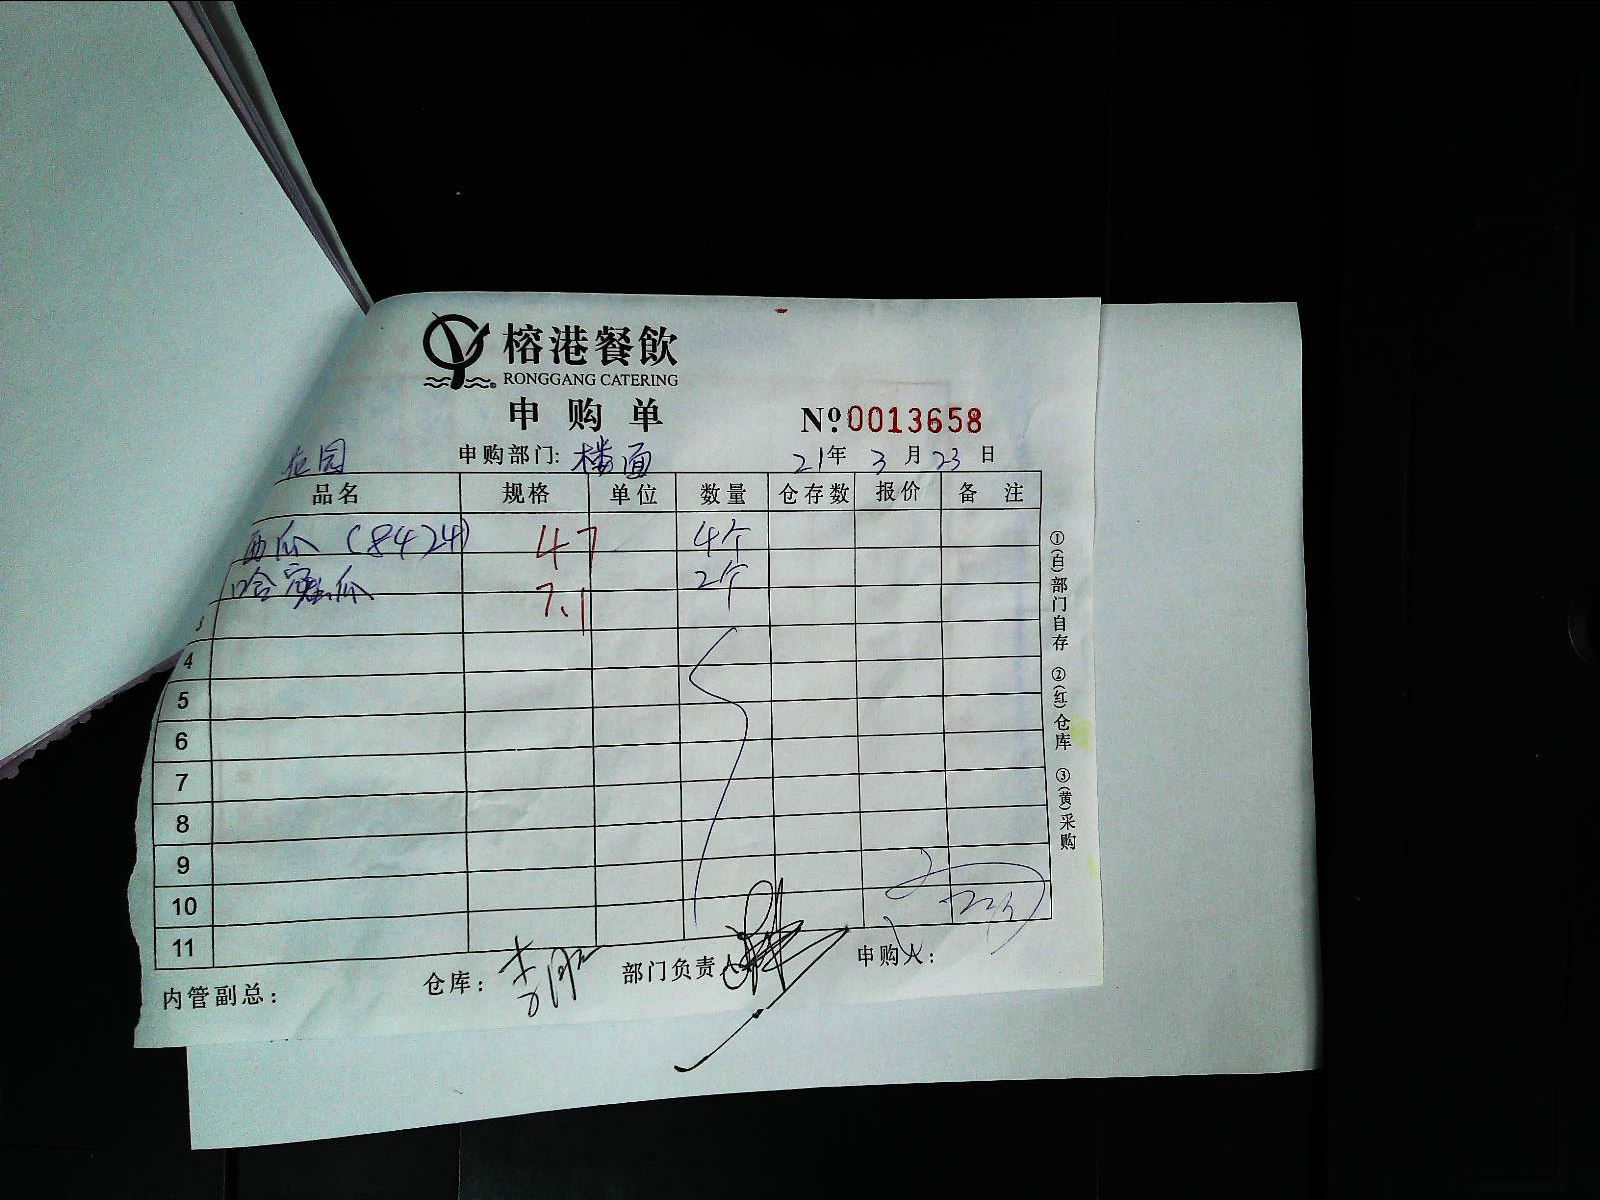 榕港餐飲
RONGGANG CATERING
申购单
№0013658
花园 申购部门: 楼面 21年3月23日
品名 规格 单位 数量 仓存数 报价 备注
西瓜(8424) 47 4个
哈密瓜 7.1 2个
3
4
5
6
7
8
9
10
11
内管副总: 仓库: 部门负责 申购人:
①(白)部门自存 ②(红)仓库 ③(黄)采购